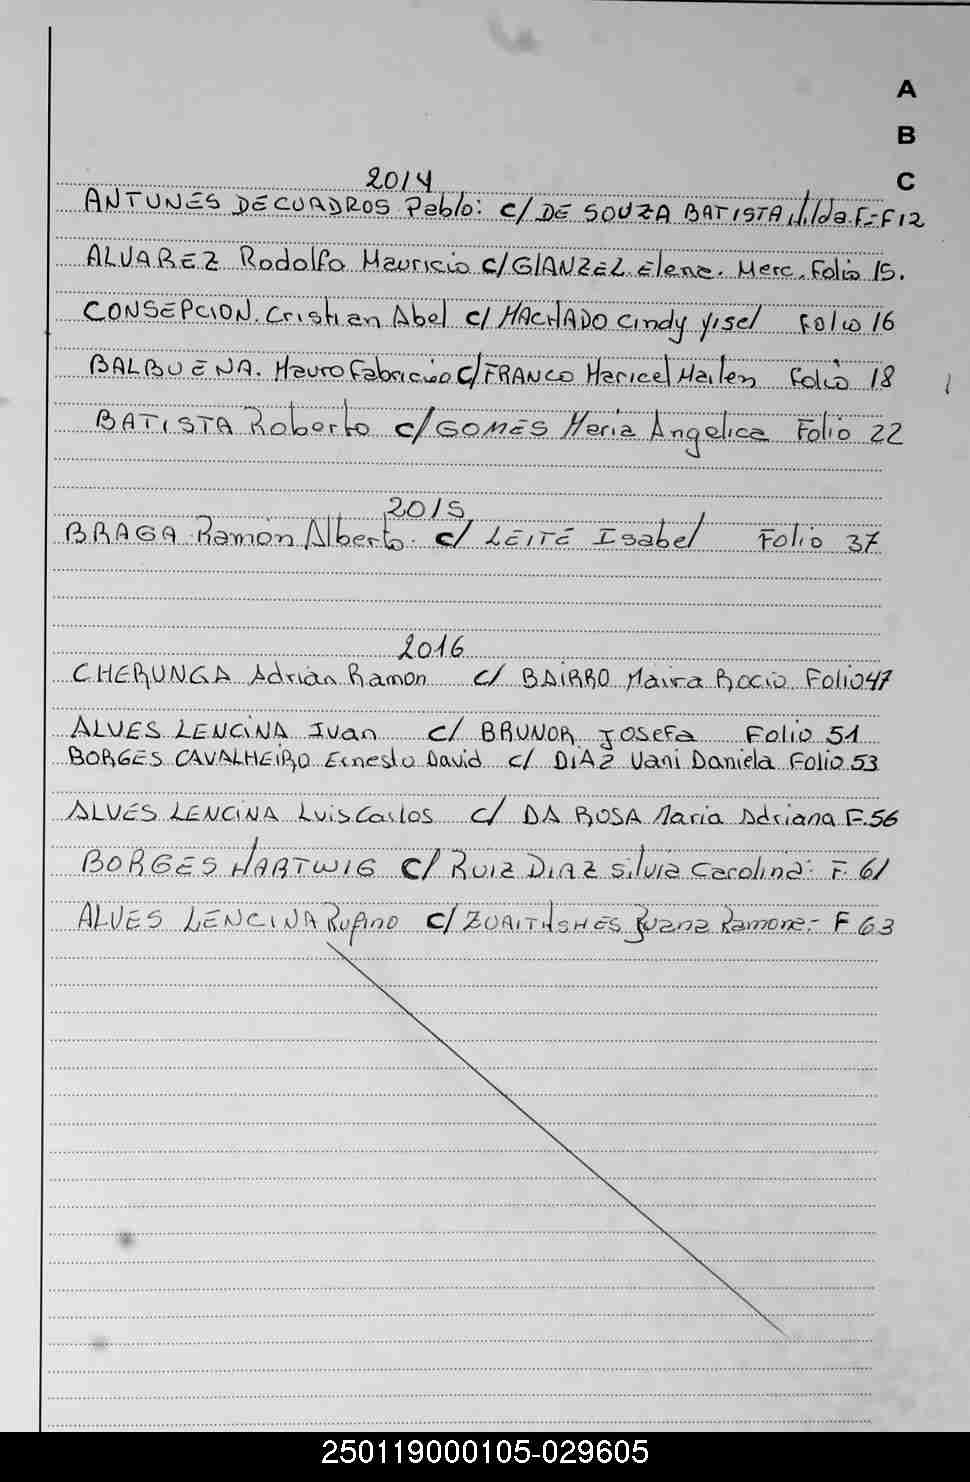 A
B
C
2014
ANTUNES DECUADROS Pablo: c/ DE SOUZA BATISTA Ilda. F=F12
ALVAREZ Rodolfo Mauricio c/GIANZEL Elena. Merc. Folio 15.
CONSEPCION. Cristian Abel c/ MACHADO Cindy Yisel Folio 16
BALBUENA. Mauro Fabricio c/FRANCO Maricel Mailen Folio 18
BATISTA Roberto c/GOMES Maria Angelica Folio 22
2015
BRAGA Ramón Alberto. c/ LEITE Isabel Folio 37
2016
CHERUNGA Adrian Ramon c/ BAIRRO Maira Rocio Folio 47
ALVES LENCINA Ivan c/ BRUNOR Josefa Folio 51
BORGES CAVALHEIRO Ernesto David c/ DIAZ Vani Daniela Folio 53
ALVES LENCINA Luis Carlos c/ DA ROSA Maria Adriana F.56
BORGES HARTWIG c/ RUIZ DIAZ Silvia Carolina: F. 61
ALVES LENCINA Rufino c/ Juana Ramona:- F 63
250119000105-029605